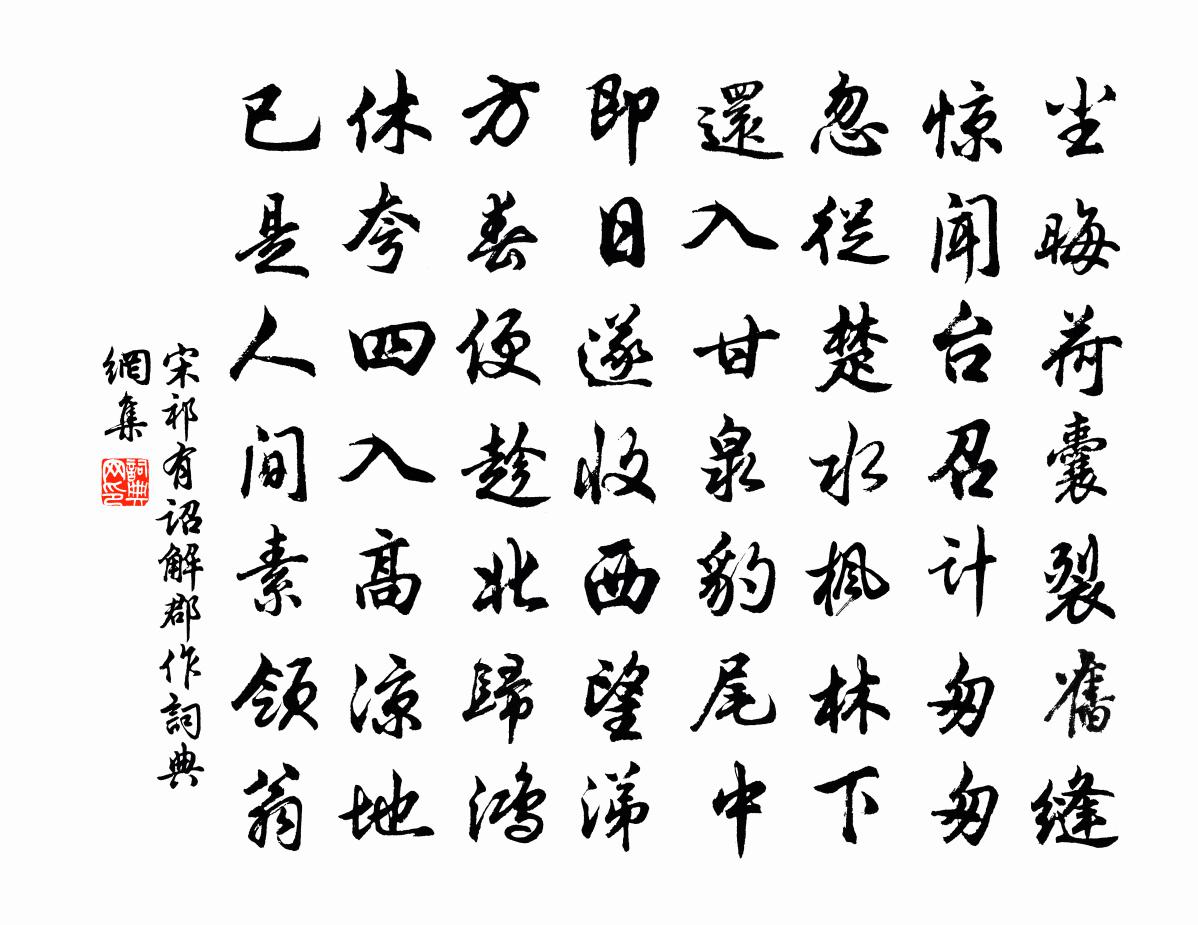 尘晦荷囊裂舊缝
惊闻台召计匆匆
忽從楚水枫林下
還入甘泉豹尾中
即日遂收西望涕
方春便趁北歸鸿
休夸四入高凉地
已是人间素领翁
宋祁有诏解郡作詞典
網集
詞典網印